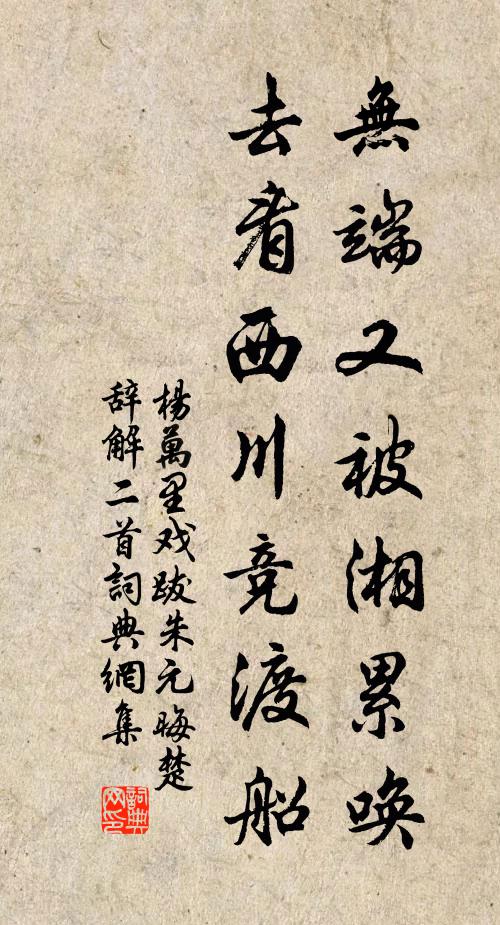 無端又被湘累喚
去看西川竞渡船
楊萬里戏跋朱元晦楚
辞解二首詞典網集
詞典
网印